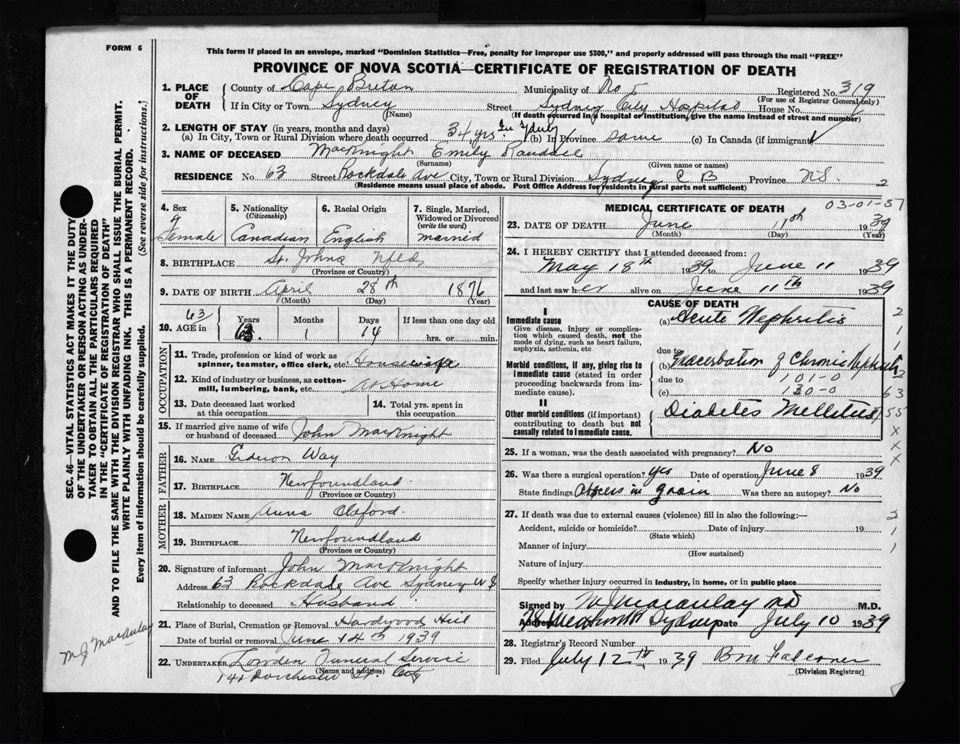 FORM 6
This form if placed in an envelope, marked "Dominion Statistics—Free, penalty for improper use $300," and properly addressed will pass through the mail "FREE"
PROVINCE OF NOVA SCOTIA—CERTIFICATE OF REGISTRATION OF DEATH
1. PLACE OF DEATH
County of Cape Breton Municipality of No 5 Registered No. 319
(For use of Registrar General only)
If in City or Town Sydney Street Sydney City Hospital House No.
(Name) (If death occurred in a hospital or institution, give the name instead of street and number)
2. LENGTH OF STAY (in years, months and days)
(a) In City, Town or Rural Division where death occurred 34 yrs. In Sydney (b) In Province same (c) In Canada (if immigrant)
3. NAME OF DECEASED MacKnight Emily
(Surname) (Given name or names)
RESIDENCE No. 63 Street Rockdale Ave City, Town or Rural Division Sydney C B Province N.S. 2
(Residence means usual place of abode. Post Office Address for residents in rural parts not sufficient)
4. Sex
Female
5. Nationality
(Citizenship)
Canadian
6. Racial Origin
English
7. Single, Married, Widowed or Divorced
(write the word)
married
8. BIRTHPLACE St. Johns Nfld
(Province or Country)
9. DATE OF BIRTH April 28th 1876
(Month) (Day) (Year)
10. AGE in 63 Years 1 Months 14 Days If less than one day
hrs. or min.
OCCUPATION
11. Trade, profession or kind of work as spinner, teamster, office clerk, etc. Housewife
12. Kind of industry or business, as cotton-mill, lumbering, bank, etc. At Home
13. Date deceased last worked at this occupation
14. Total yrs. spent in this occupation
15. If married give name of wife or husband of deceased John MacKnight
FATHER
16. NAME Gideon Way
17. BIRTHPLACE Newfoundland
(Province or Country)
MOTHER
18. MAIDEN NAME Anna
19. BIRTHPLACE Newfoundland
(Province or Country)
20. Signature of informant John MacKnight
Address 63 Rockdale Ave Sydney N S
Relationship to deceased Husband
21. Place of Burial, Cremation or Removal Hardwood Hill
Date of burial or removal June 14th 1939
22. UNDERTAKER Funeral Service
(Name and address)
Dorchester St City
MEDICAL CERTIFICATE OF DEATH 03-01-51
23. DATE OF DEATH June 11th 1939
(Month) (Day) (Year)
24. I HEREBY CERTIFY that I attended deceased from:
May 18th 1939 to June 11 1939
and last saw her alive on June 11th 1939
CAUSE OF DEATH
I
Immediate cause
Give disease, injury or complication which caused death, not the mode of dying, such as heart failure, asphyxia, asthenia, etc
(a) Acute Nephritis
due to
Morbid conditions, if any, giving rise to immediate cause (stated in order proceeding backwards from immediate cause).
(b) Exacerbation of Chronic Nephritis
due to 101-0
(c) 130-0
II
Other morbid conditions (if important) contributing to death but not causally related to immediate cause.
Diabetes Mellitus
25. If a woman, was the death associated with pregnancy? No
26. Was there a surgical operation? Yes Date of operation June 8 1939
State findings Abscess in groin Was there an autopsy? No
27. If death was due to external causes (violence) fill in also the following:—
Accident, suicide or homicide? Date of injury 19
(State which)
Manner of injury
(How sustained)
Nature of injury
Specify whether injury occurred in industry, in home, or in public place
Signed by M J Macaulay MD M.D.
Address Sydney Date July 10 1939
28. Registrar's Record Number
29. Filed July 12th 1939 Falconer
(Division Registrar)
SEC. 46—VITAL STATISTICS ACT MAKES IT THE DUTY
OF THE UNDERTAKER OR PERSON ACTING AS UNDER-
TAKER TO OBTAIN ALL THE PARTICULARS REQUIRED
IN THE "CERTIFICATE OF REGISTRATION OF DEATH"
AND TO FILE THE SAME WITH THE DIVISION REGISTRAR WHO SHALL ISSUE THE BURIAL PERMIT.
WRITE PLAINLY WITH UNFADING INK. THIS IS A PERMANENT RECORD.
Every item of information should be carefully supplied. (See reverse side for instructions.)
M J Macaulay